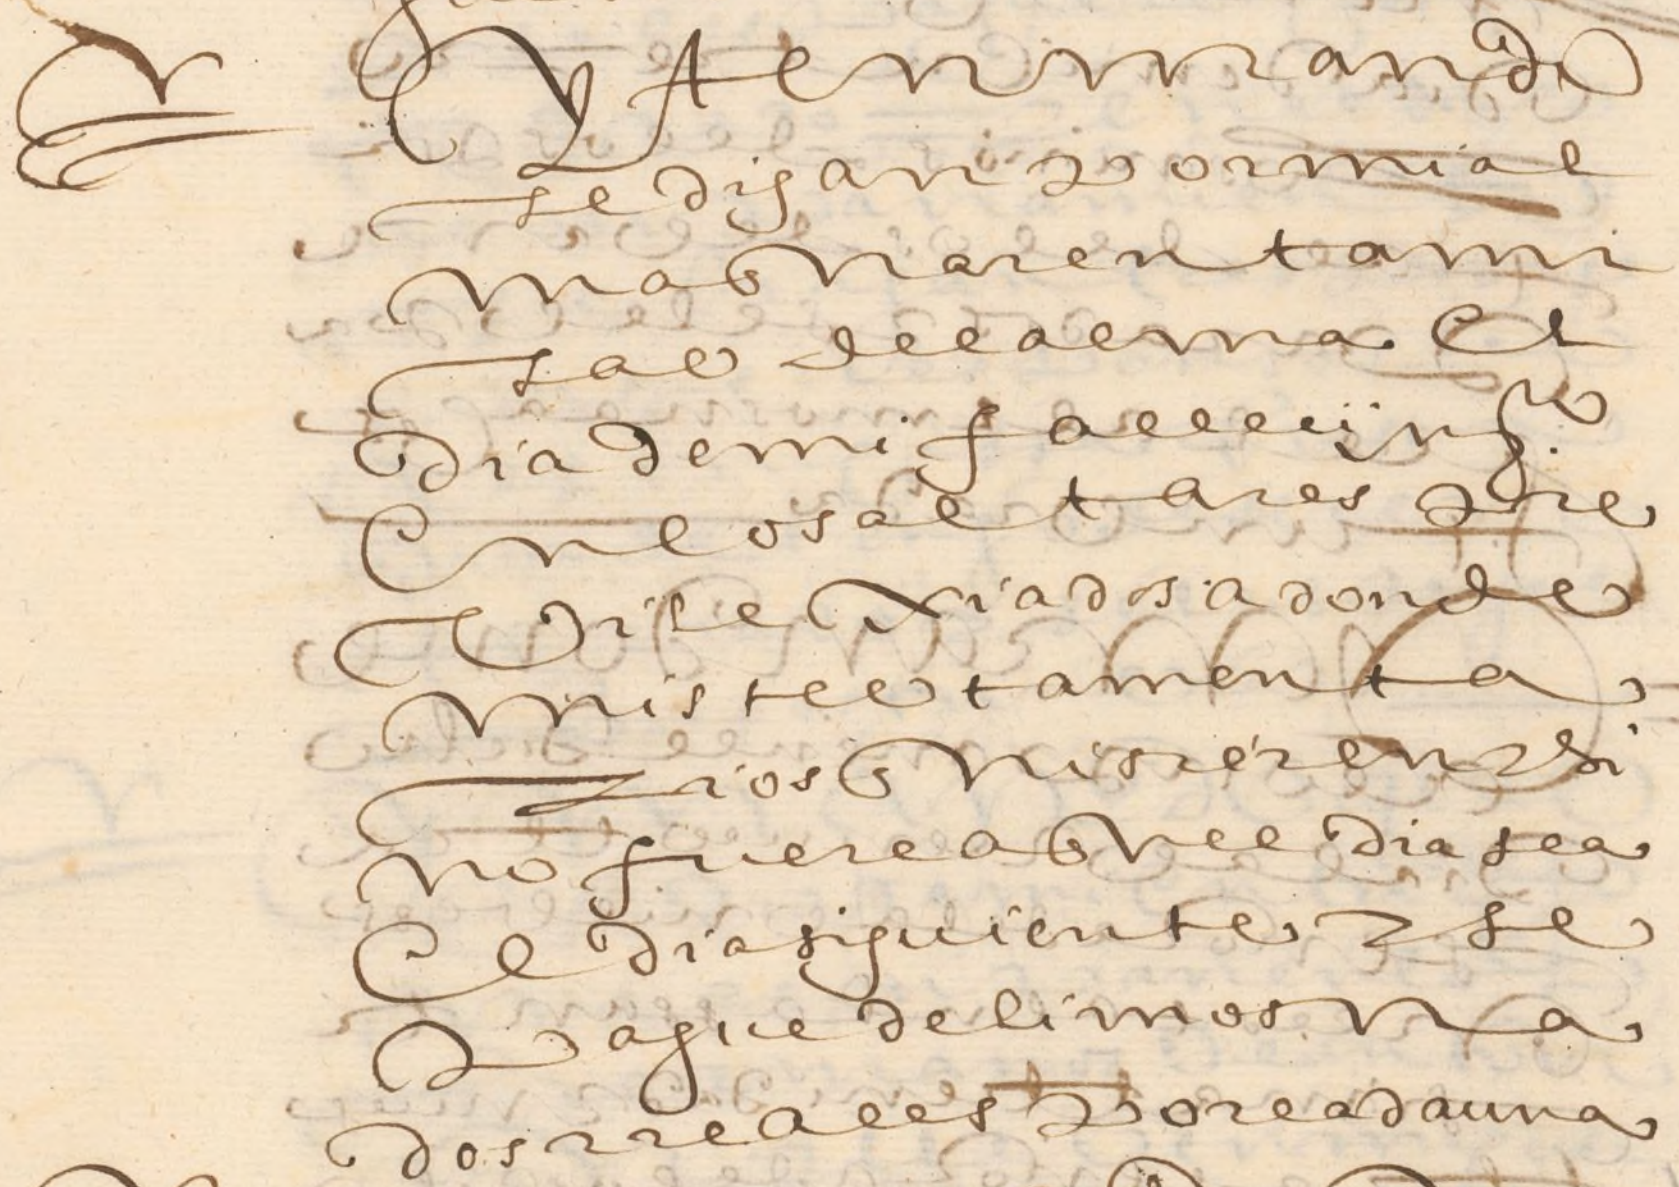 Yten mando
se digan por mi al
ma quarenta mi
sas del alma el
dia de mi fallecimyº
en los altares pre
vilexiados a donde
mis testamenta
rios quisieren y si
no fuere aquel dia sea
el dia siguiente y se
pague de limosna
dos rreales por cada una